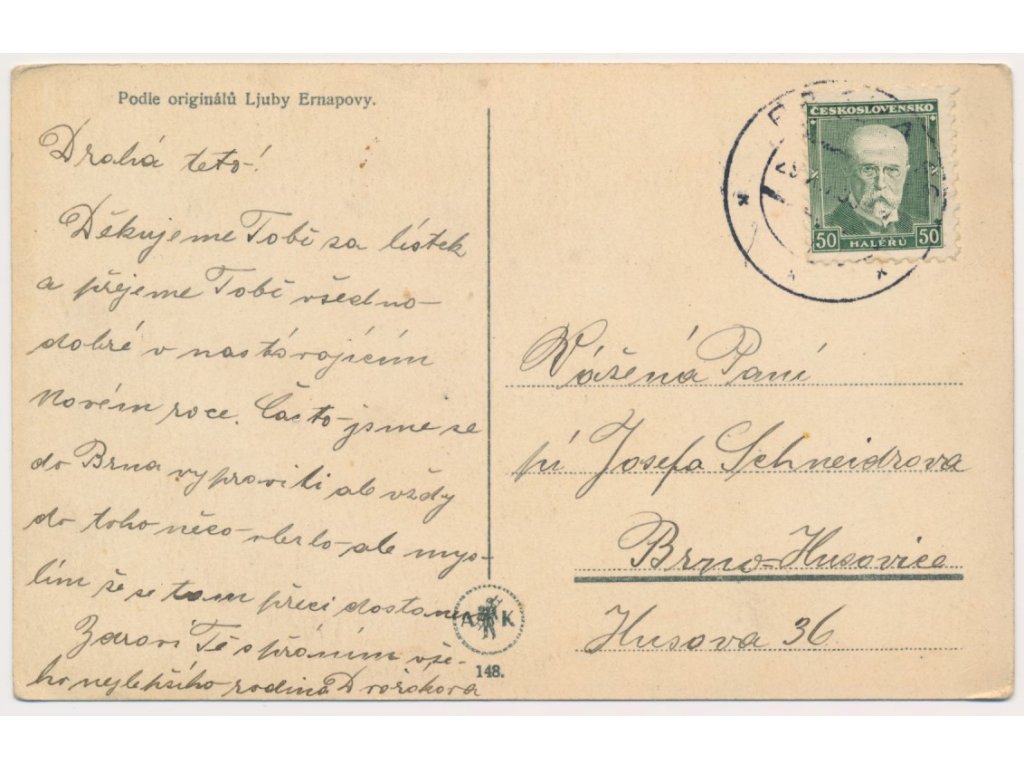 Podle originálů Ljuby Ernapovy.
Drahá teto!
Děkujeme Tobě za lístek
a přejeme Tobě všechno
dobré v nastávajícím
Novém roce. Často jsme se
do Brna vypraviti ale vždy
do toho něco vlezlo ale mys-
lím že se tam přeci dostanem
Zdraví Tě s přáním vše-
ho nejlepšího rodina Dvořákova
ČESKOSLOVENSKO
50 HALÉŘŮ 50
Vážená Paní
pí Josefa Schneidrova
Brno-Husovice
Husova 36
A K
148.